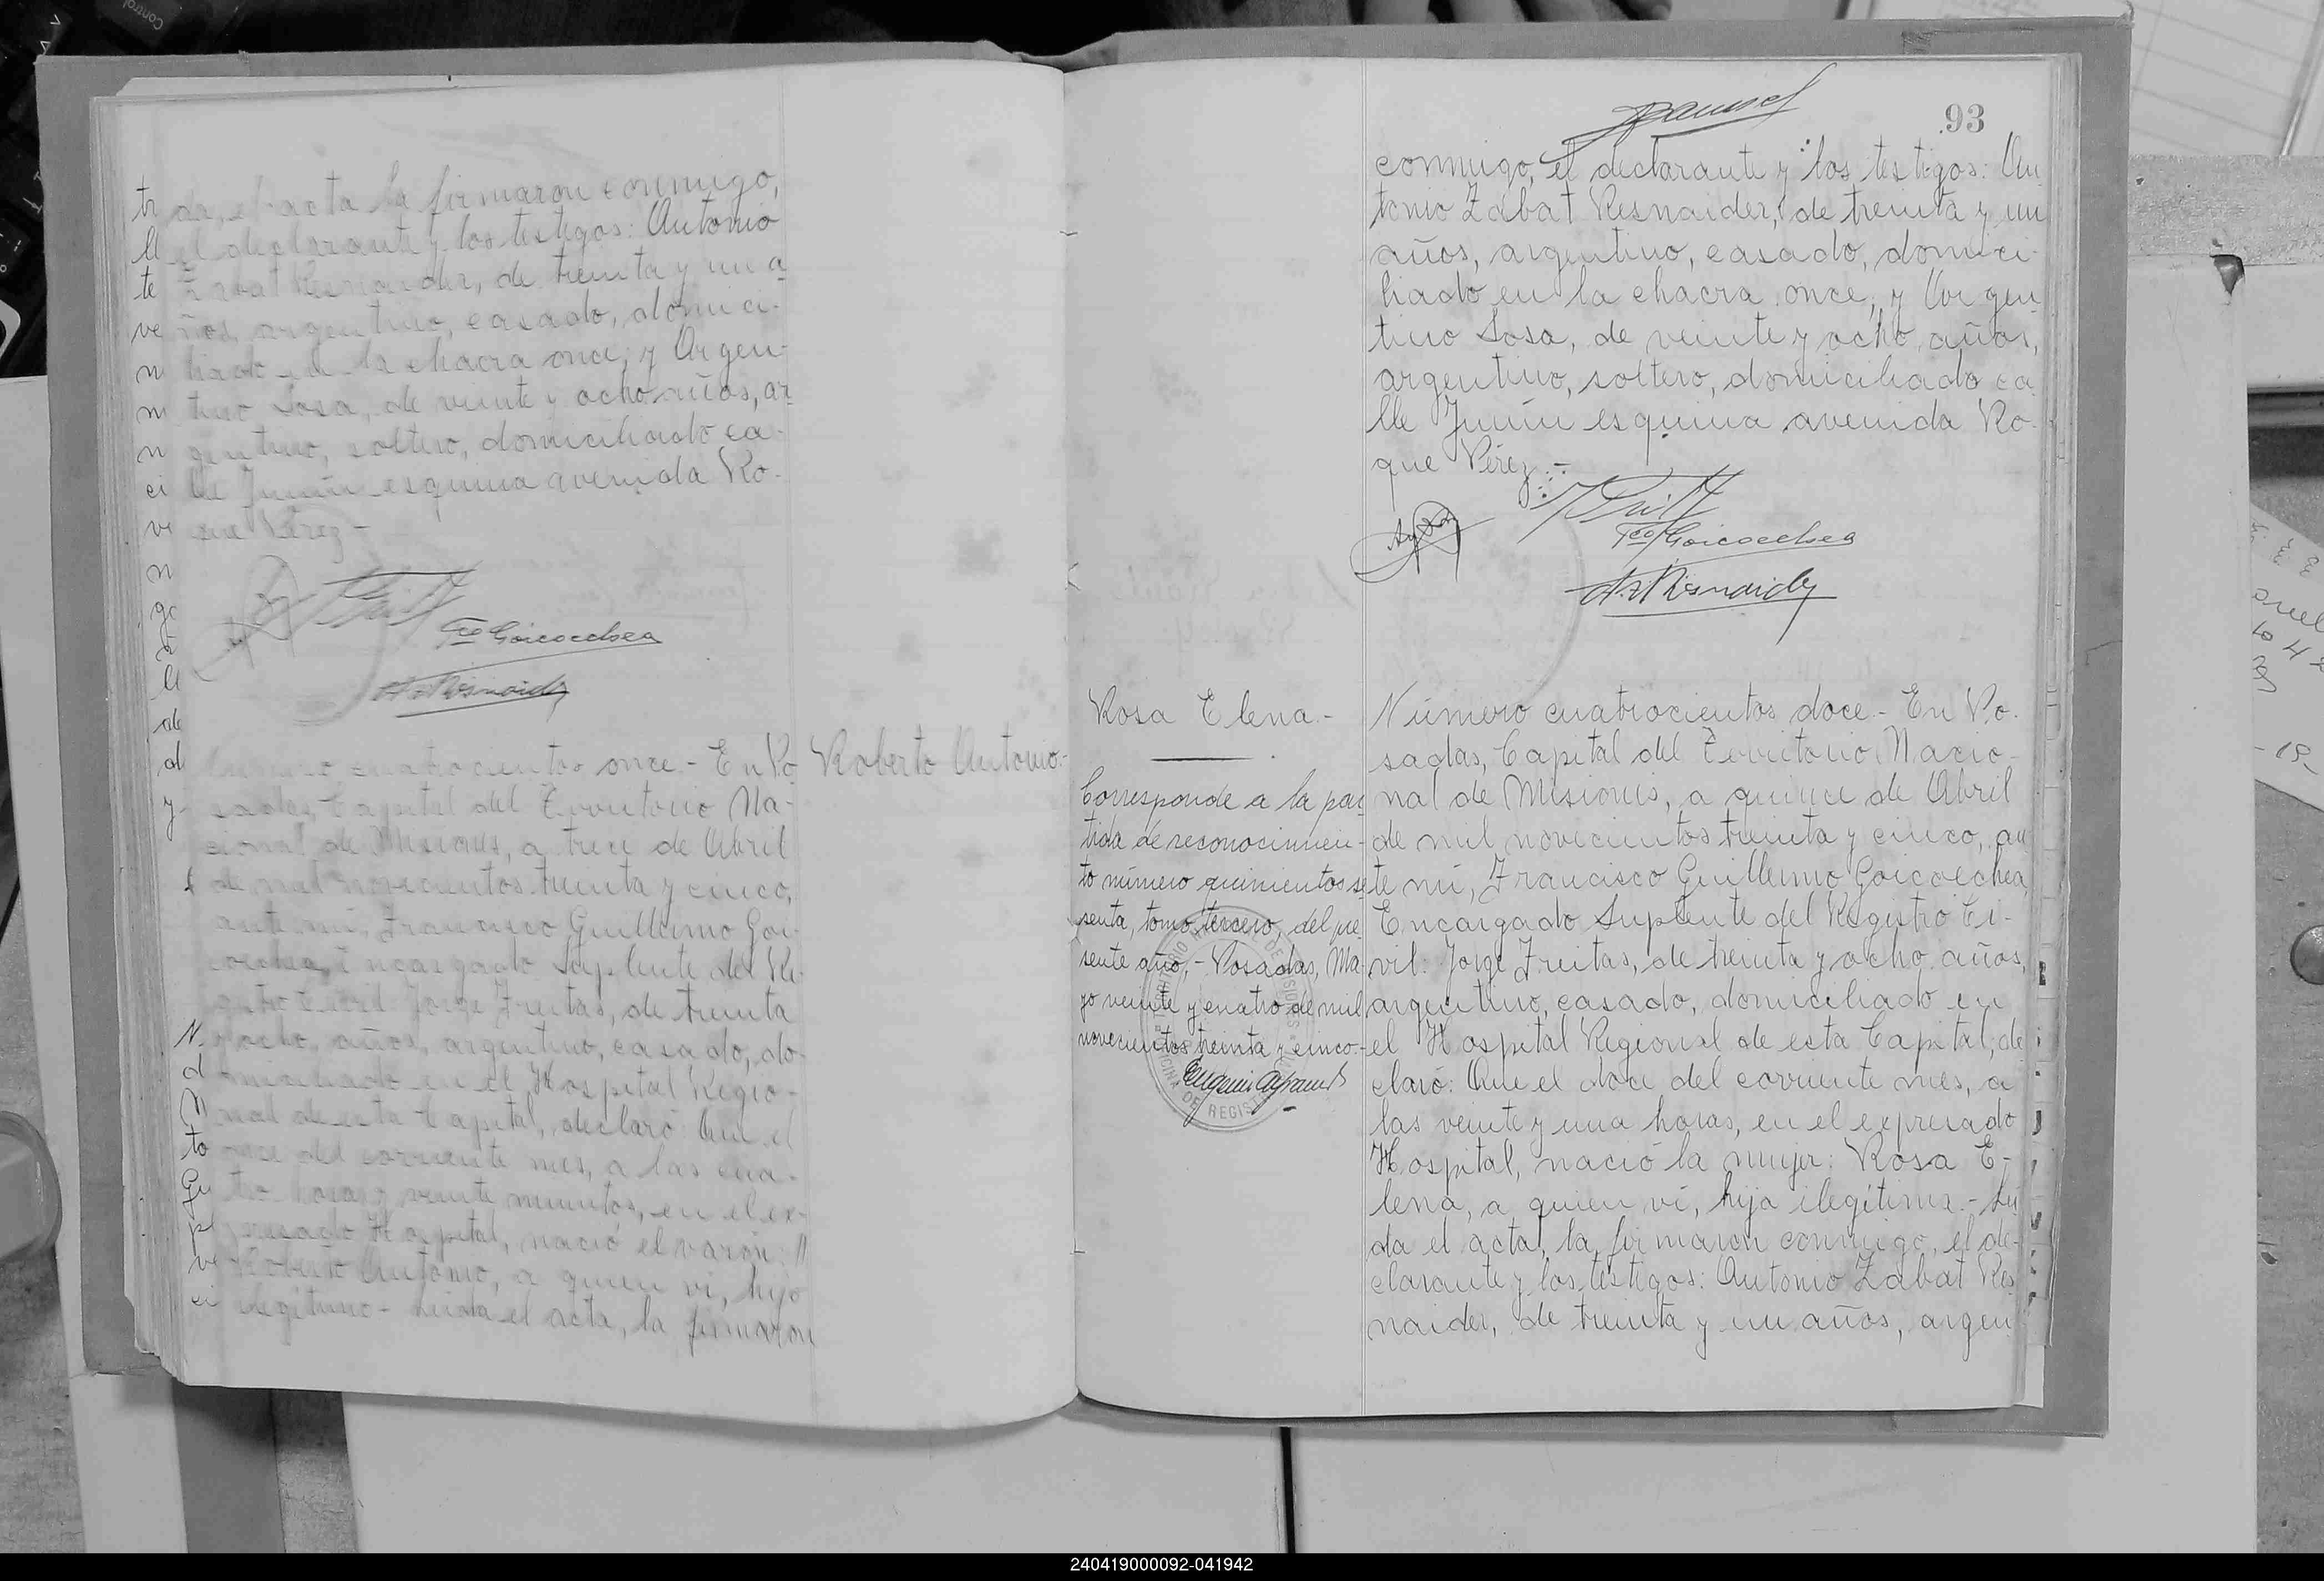 da, el acta la firmaron conmigo,
el declarante y los testigos: Antonio
Zabat Resnaider, de treinta y un a
ños, argentino, casado, domici-
liado en la chacra once; y Argen-
tino Sosa, de veinte y ocho años, ar
gentino, soltero, domiciliado ca-
lle Junín esquina avenida Ro-
que Pérez-
Fco Goicoechea
A. Z. Resnaider
Número cuatrocientos once.- En Po
sadas, Capital del Territorio Na-
cional de Misiones, a trece de Abril
de mil novecientos treinta y cinco,
ante mí, Francisco Guillermo Goi-
coechea, Encargado Suplente del Re-
gistro Civil: Jorge Freitas, de treinta
y ocho años, argentino, casado, do-
miciliado en el Hospital Regio-
nal de esta Capital, declaró: Que el
once del corriente mes, a las cua-
tro horas y veinte minutos, en el ex-
presado Hospital, nació el varón: //
Roberto Antonio, a quien vi, hijo
ilegítimo- Leida el acta, la firmaron
Roberto Antonio.-
93
conmigo, el declarante y los testigos: An
tonio Zabat Resnaider, de treinta y un
años, argentino, casado, domici-
liado en la chacra once; y Argen
tino Sosa, de veinte y ocho años,
argentino, soltero, domiciliado ca
lle Junín esquina avenida Ro-
que Pérez.-
Fco Goicoechea
A. Z. Resnaider
Rosa Elena.-
Corresponde a la par
tida de reconocimien-
to número quinientos se
senta, tomo tercero, del pre
sente año.- Posadas, Ma-
yo veinte y cuatro de mil
novecientos treinta y cinco.-
Número cuatrocientos doce.- En Po-
sadas, Capital del Territorio Nacio-
nal de Misiones, a quince de Abril
de mil novecientos treinta y cinco, an
te mí, Francisco Guillermo Goicoechea,
Encargado Suplente del Registro Ci-
vil: Jorge Freitas, de treinta y ocho años,
argentino, casado, domiciliado en
el Hospital Regional de esta Capital, de
claró: Que el doce del corriente mes, a
las veinte y una horas, en el expresado
Hospital, nació la mujer: Rosa E-
lena, a quien vi, hija ilegítima.- Lei
da el acta, la firmaron conmigo, el de-
clarante y los testigos: Antonio Zabat Res
naider, de treinta y un años, argen
240419000092-041942